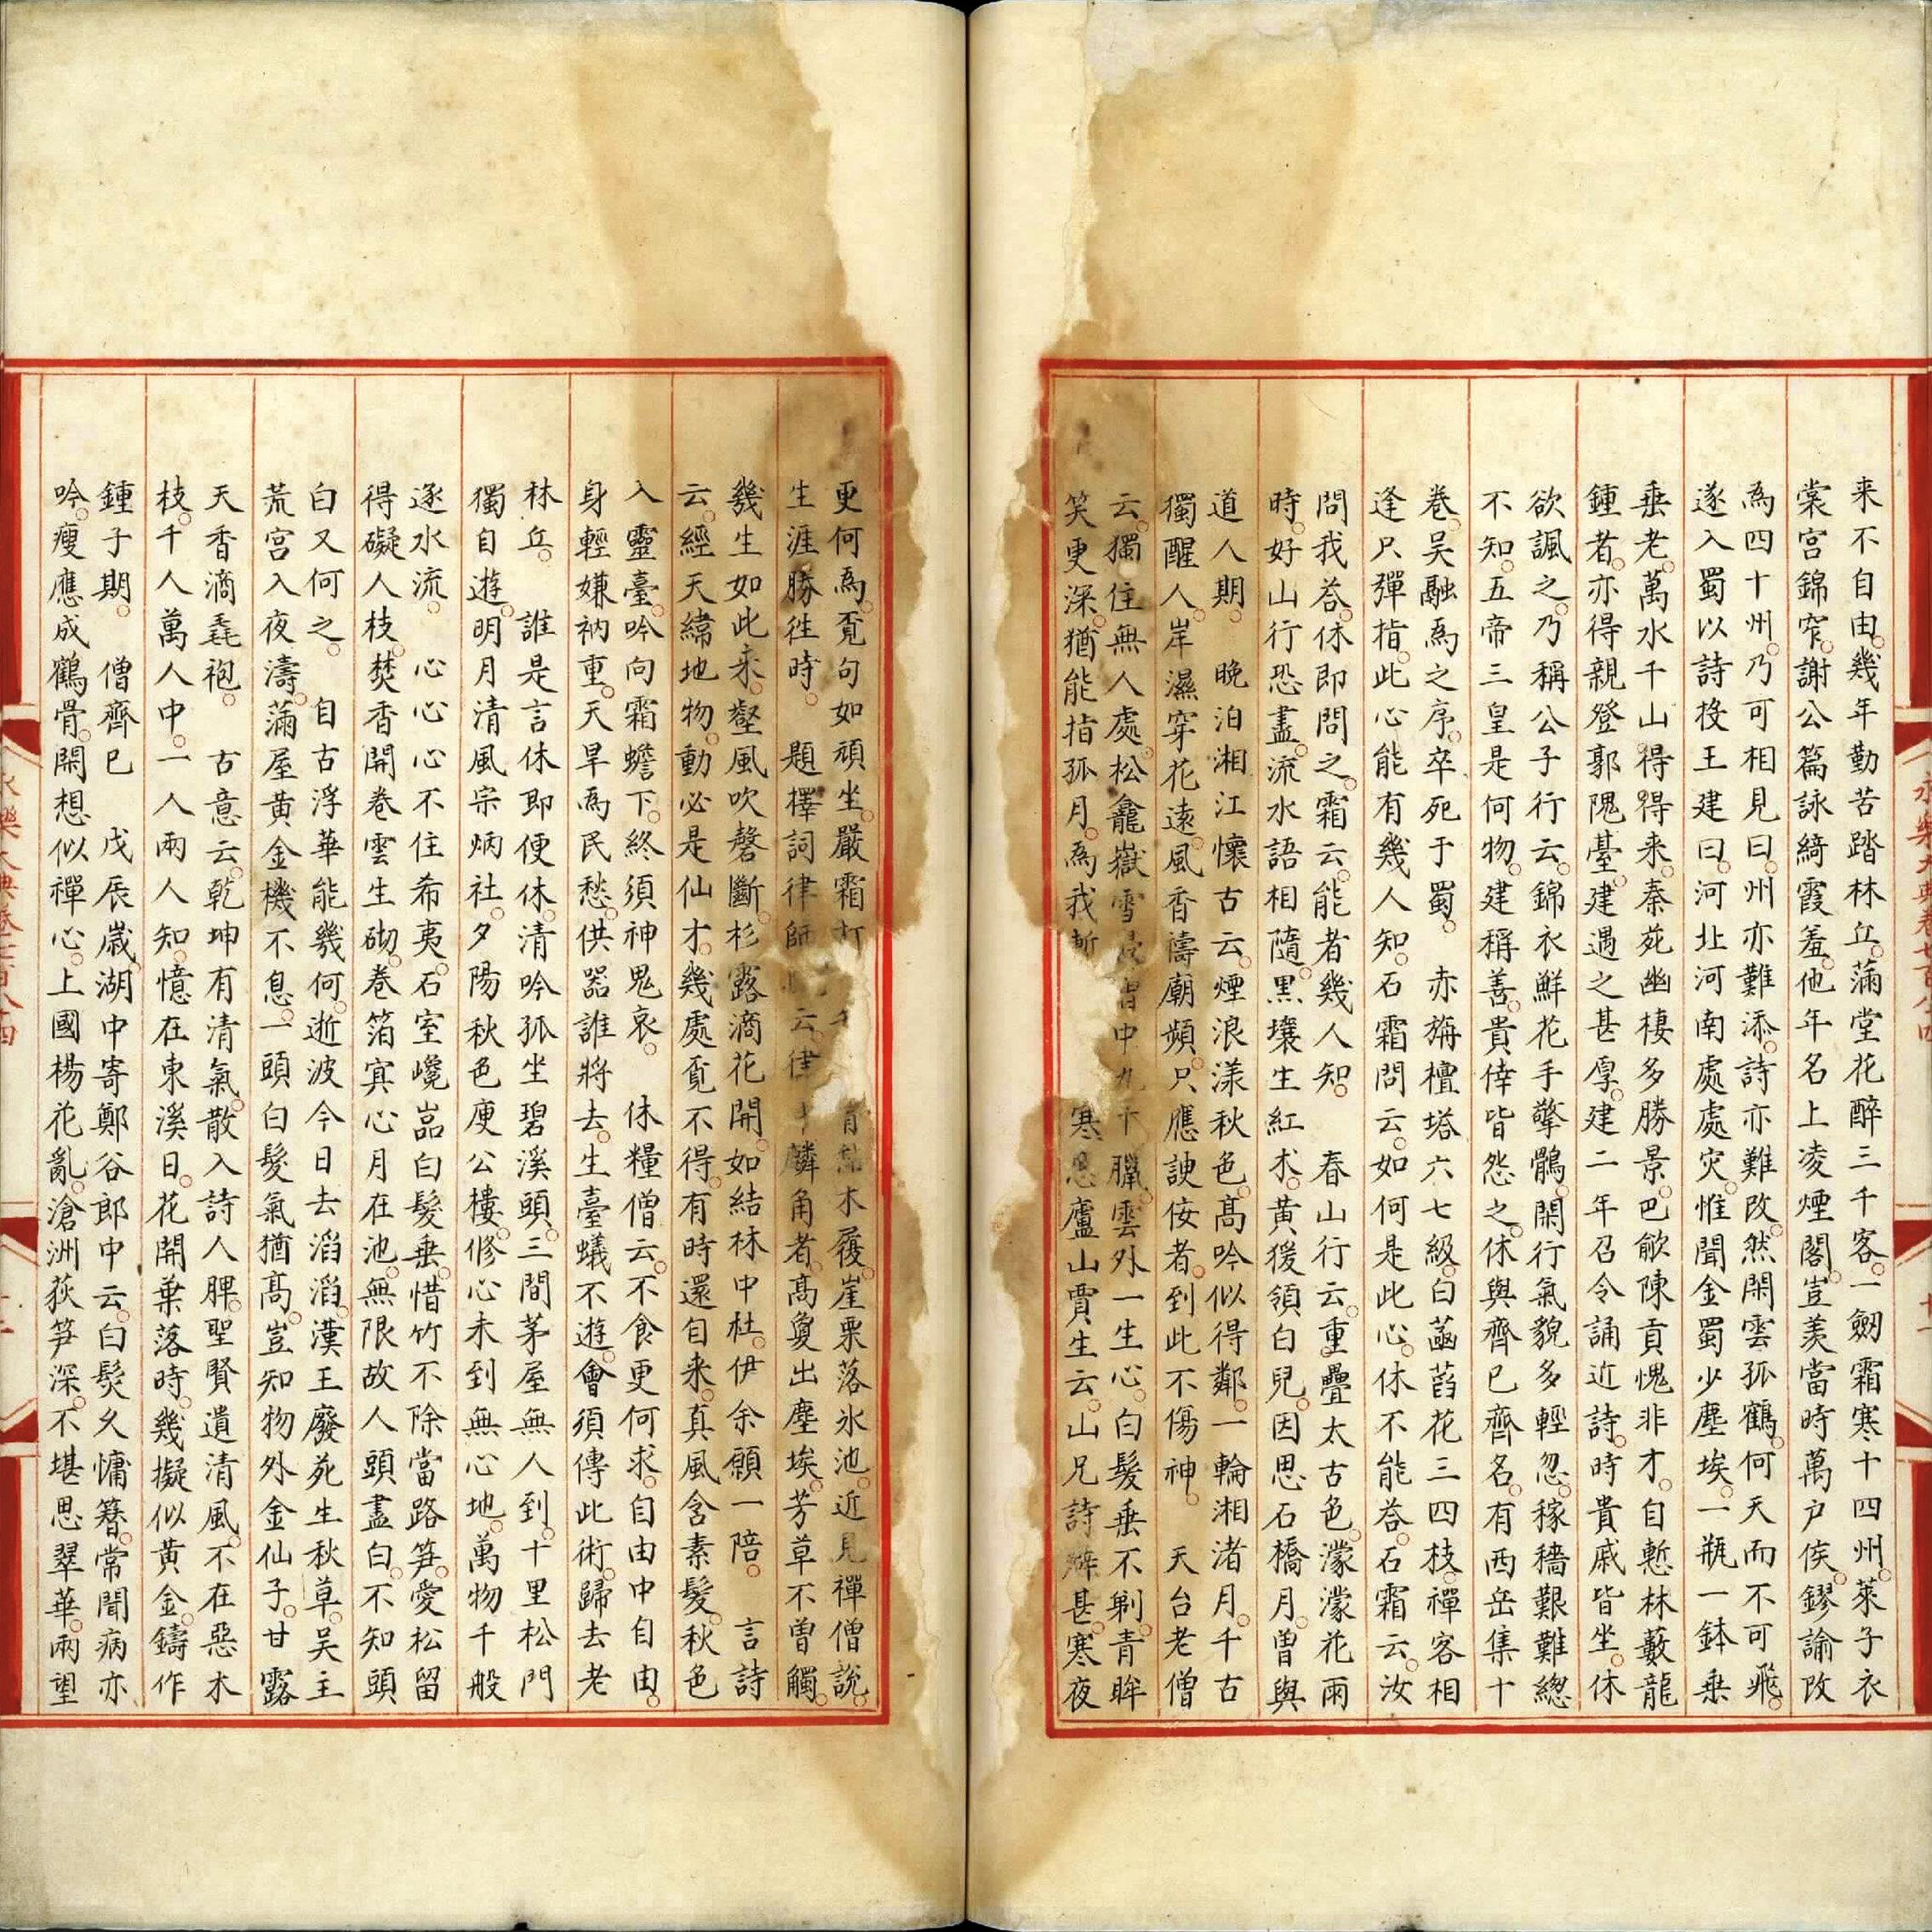 来不自由幾年勤苦踏林丘滿堂花醉三千客一劒霜寒十四州萊子衣
裳宮錦窄謝公篇詠綺霞羞他年名上凌煙閣豈羡當時萬户侯鏐諭改
爲四十州乃可相見曰州亦難添詩亦難改然閑雲孤鶴何天而不可飛
遂入蜀以詩投王建曰河北河南處處灾惟聞金蜀少塵埃一瓶一鉢乗
垂老萬水千山得得来秦苑幽棲多勝景巴歈陳貢愧非才自慙林藪龍
鍾者亦得親登郭隗臺建遇之甚厚建二年召令誦近詩時貴戚皆坐休
欲諷之乃稱公子行云錦衣鮮花手擎鶻閑行氣貌多輕忽稼穡艱難緫
不知五帝三皇是何物建稱善貴倖皆怨之休與齊已齊名有西岳集十
卷吴融爲之序卒死于蜀 赤旃檀塔六七級白菡萏花三四枝禪客相
逢只彈指此心能有幾人知石霜問云如何是此心休不能荅石霜云汝
問我荅休即問之霜云能者幾人知 春山行云重疊太古色濛濛花雨
時好山行恐盡流水語相隨黒壤生紅朮黄猨領白兒因思石橋月曽與
道人期 晚泊湘江懷古云煙浪漾秋色髙吟似得鄰一輪湘渚月千古
獨醒人岸濕穿花遠風香禱廟頻只應諛佞者到此不傷神 天台老僧
云獨住無人處松龕嶽雪 中九十臘雲外一生心白髮垂不剃青眸
笑更深猶能指孤月爲我 寒思廬山賈生云山兄詩癖甚寒夜
更何爲覔句如頑坐嚴霜打 木履崖栗落氷池近見禪僧說
生涯勝徃時 題擇詞律師 云律 麟角者髙夐出塵埃芳草不曽觸
幾生如此来壑風吹磬斷杉露滴花開如結林中社伊余願一陪 言詩
云經天緯地物動必是仙才幾處覔不得有時還自来真風含素髮秋色
入靈臺吟向霜蟾下終須神鬼哀 休糧僧云不食更何求自由中自由
身輕嫌衲重天旱爲民愁供器誰將去生臺蟻不遊會須傳此術歸去老
林丘 誰是言休即便休清吟孤坐碧溪頭三間茅屋無人到十里松門
獨自遊明月清風宗炳社夕陽秋色庾公樓修心未到無心地萬物千般
逐水流 心心心不住希夷石室巉嵓白髮垂惜竹不除當路笋愛松留
得礙人枝焚香開卷雲生砌卷箔㝠心月在池無限故人頭盡白不知頭
白又何之 自古浮華能幾何逝波今日去滔滔漢王廢苑生秋草吴主
荒宮入夜濤滿屋黄金機不息一頭白髮氣猶髙豈知物外金仙子甘露
天香滴毳袍 古意云乾坤有清氣散入詩人脾聖賢遺清風不在惡木
枝千人萬人中一人兩人知憶在東溪日花開葉落時幾擬似黄金鑄作
鍾子期 僧齊巳 戊辰歲湖中寄鄭谷郎中云白髮久慵簪常聞病亦
吟瘦應成鶴骨閑想似禪心上國楊花亂滄洲荻笋深不堪思翠華兩望